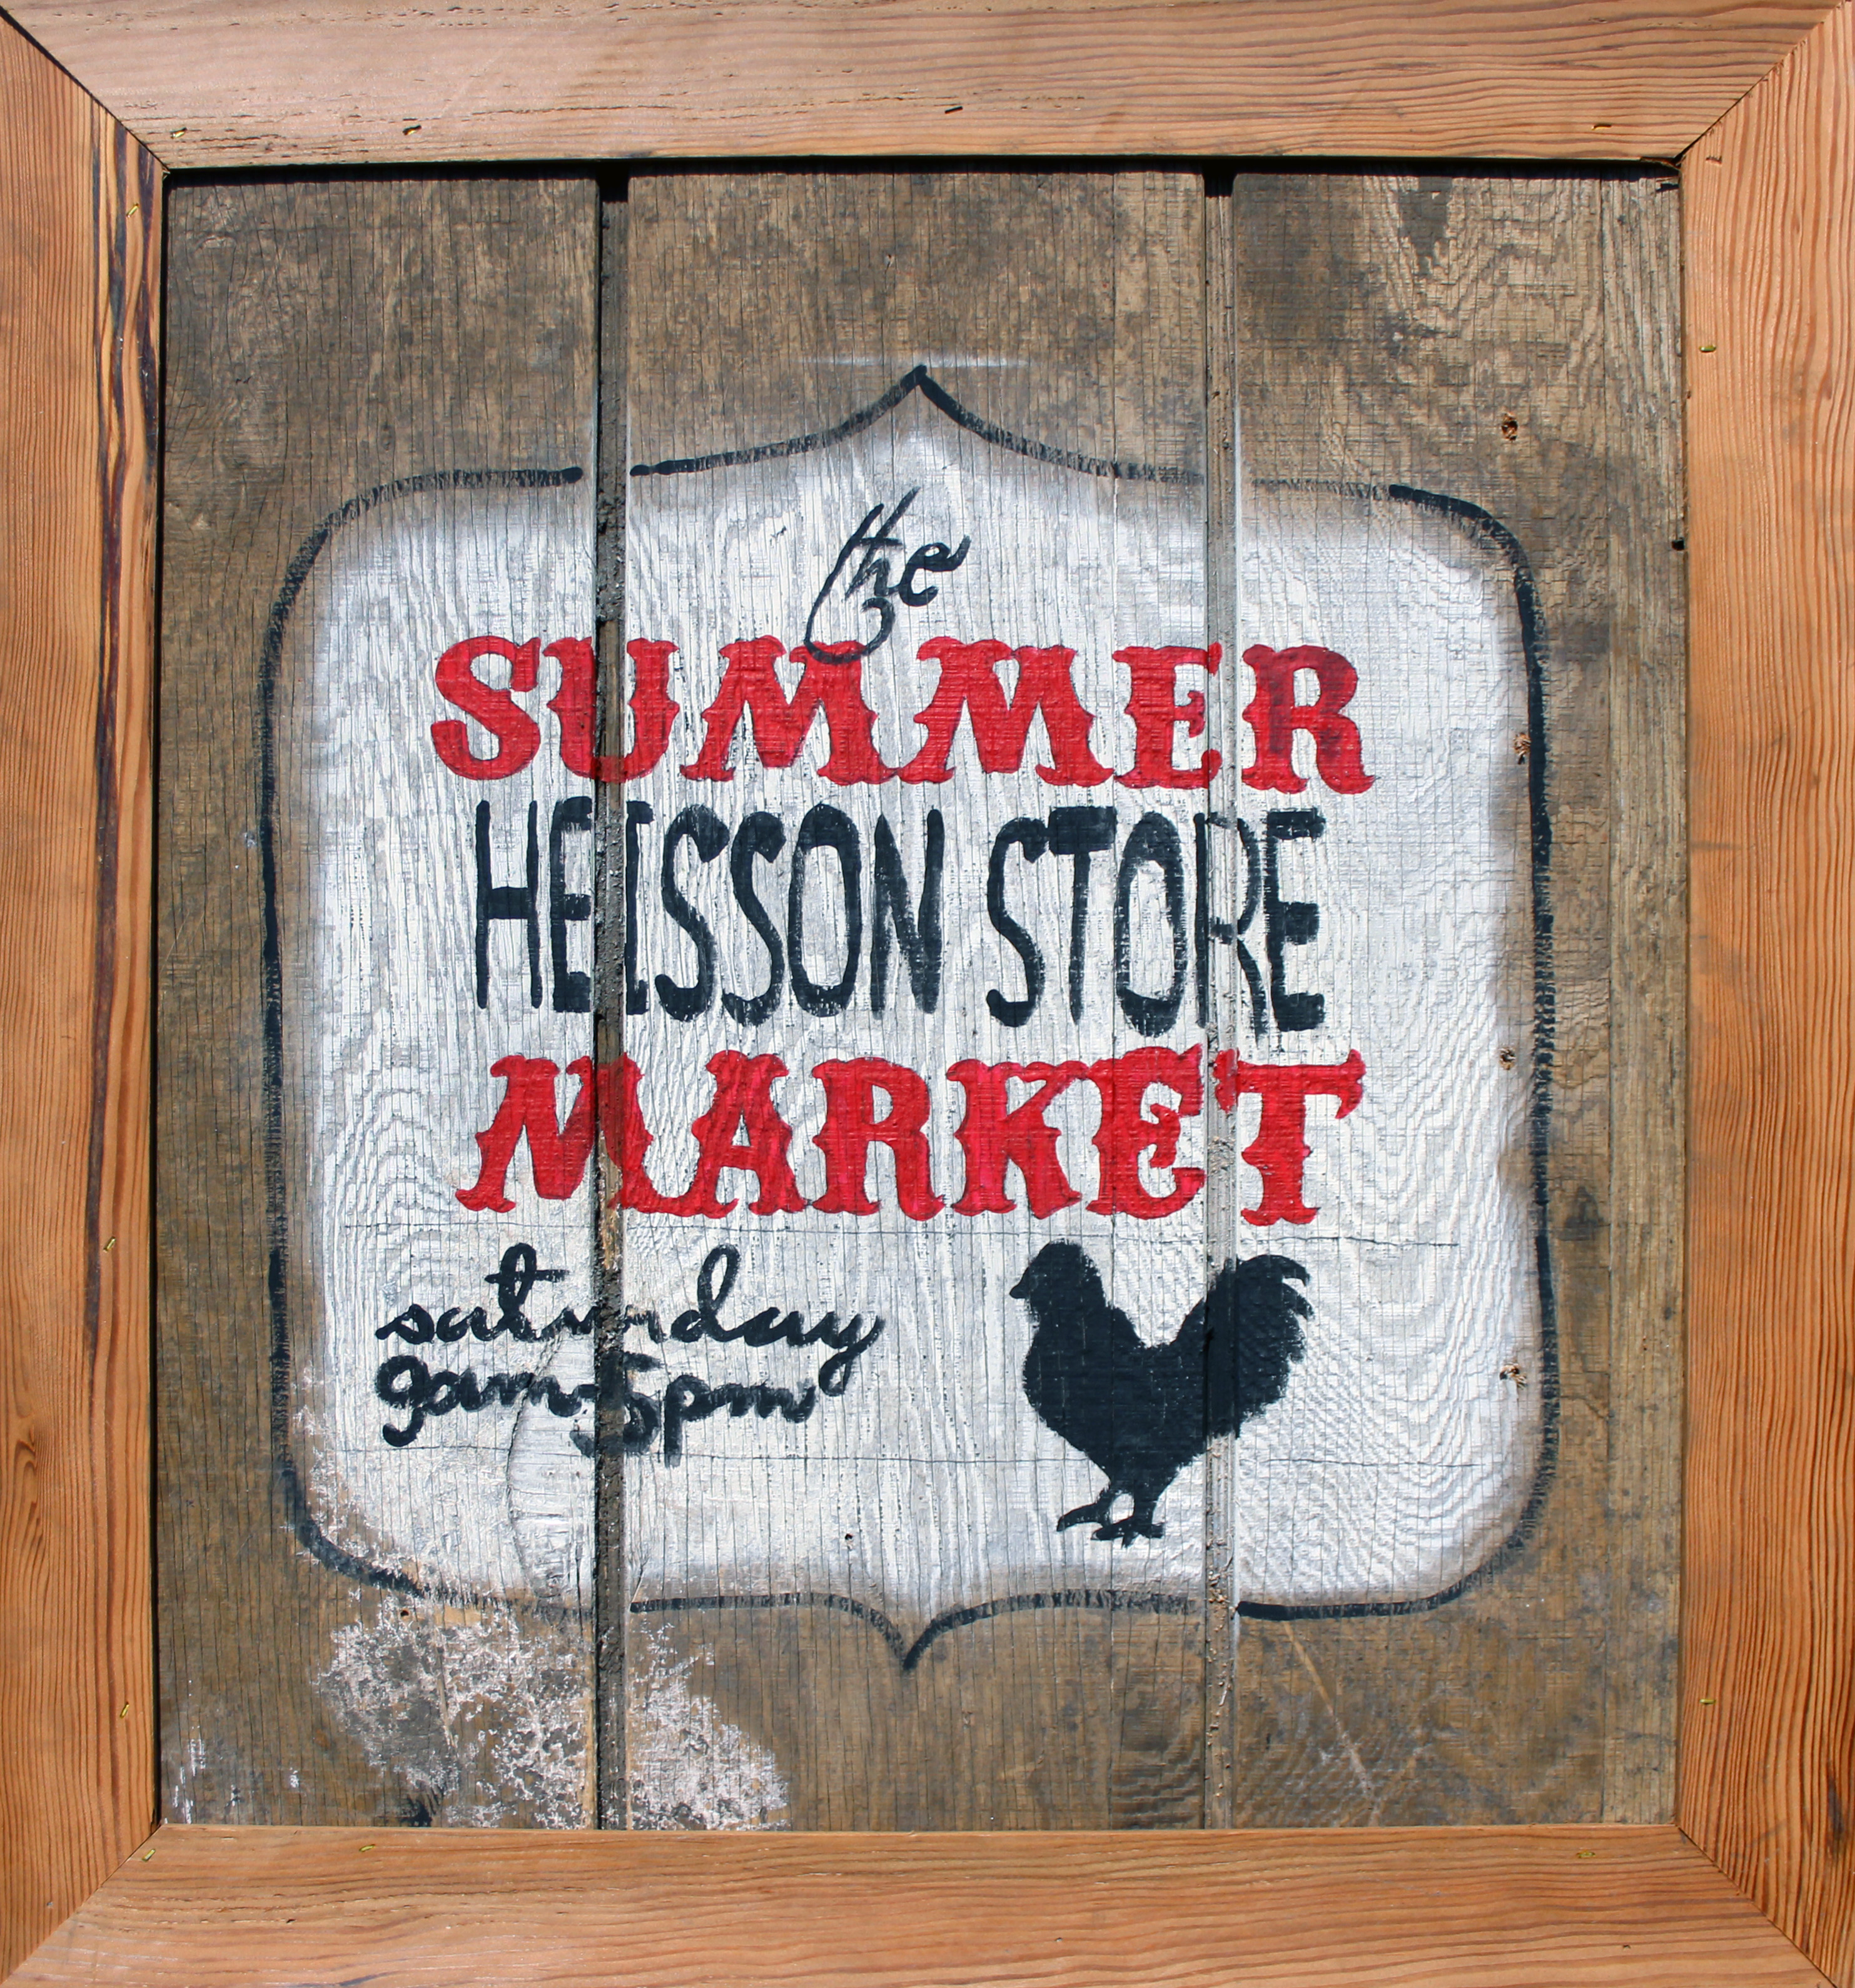 the
SUMMER
HEISSON STORE
MARKET
saturday
9am-5pm